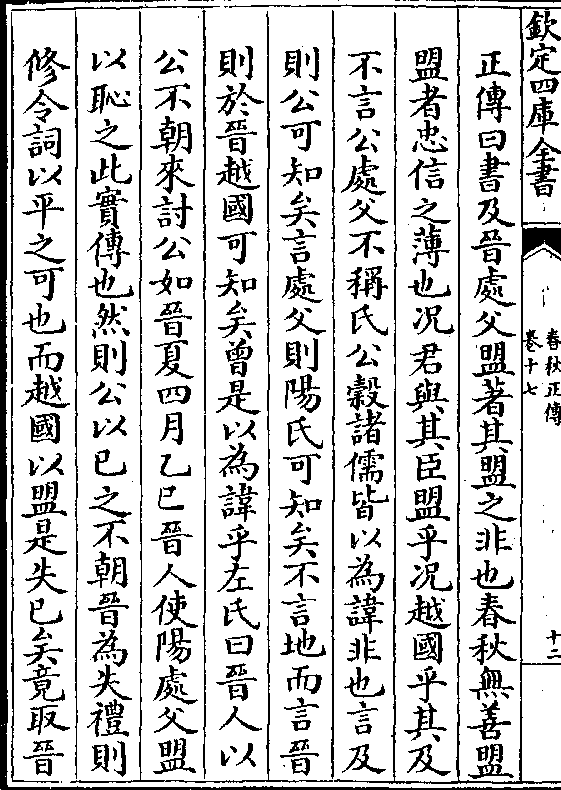 欽定四庫全書
春秋正傳
卷十七
十二
正傳曰書及晉處父盟著其盟之非也春秋無善盟
盟者忠信之薄也况君與其臣盟乎况越國乎其及
不言公處父不稱氏公穀諸儒皆以為諱非也言及
則公可知矣言處父則陽氏可知矣不言地而言晉
則於晉越國可知矣曾是以為諱乎左氏曰晉人以
公不朝來討公如晉夏四月乙巳晉人使陽處父盟
以恥之此實傳也然則公以已之不朝晉為失禮則
修令詞以平之可也而越國以盟是失已矣竟取晉